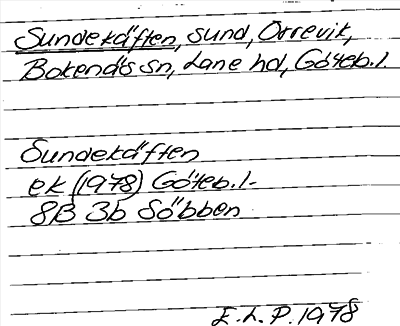 Sundekäften, sund, Orrevik,
Bokenäs sn, Lane hd, Göteb. l.
Sundekäften
ek (1978) Göteb. l.
8B 3b Söbben
E. L. P. 1978